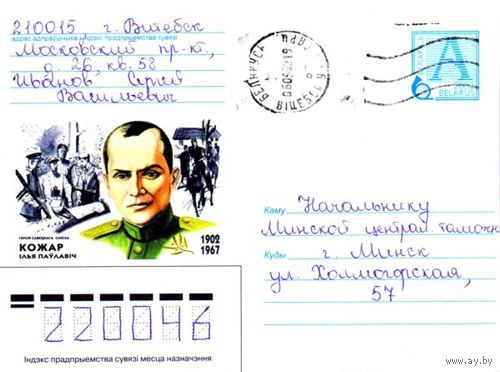 210015 г. Витебск
адрас адпраўшчыка індэкс прадпрыемства сувязі
Московский пр-кт,
д. 26, кв. 58
Иванов Сергей
Васильевич
БЕЛАРУСЬ
ВІЦЕБСК
A
BELARUS
ГЕРОЙ САВЕЦКАГА САЮЗА
КОЖАР
ІЛЬЯ ПАЎЛАВІЧ
1902
1967
Каму Начальнику
Минской централ. таможни
Куды г. Минск
ул. Холмогорская,
57
220046
Індэкс прадпрыемства сувязі месца назначэння
www.ay.by